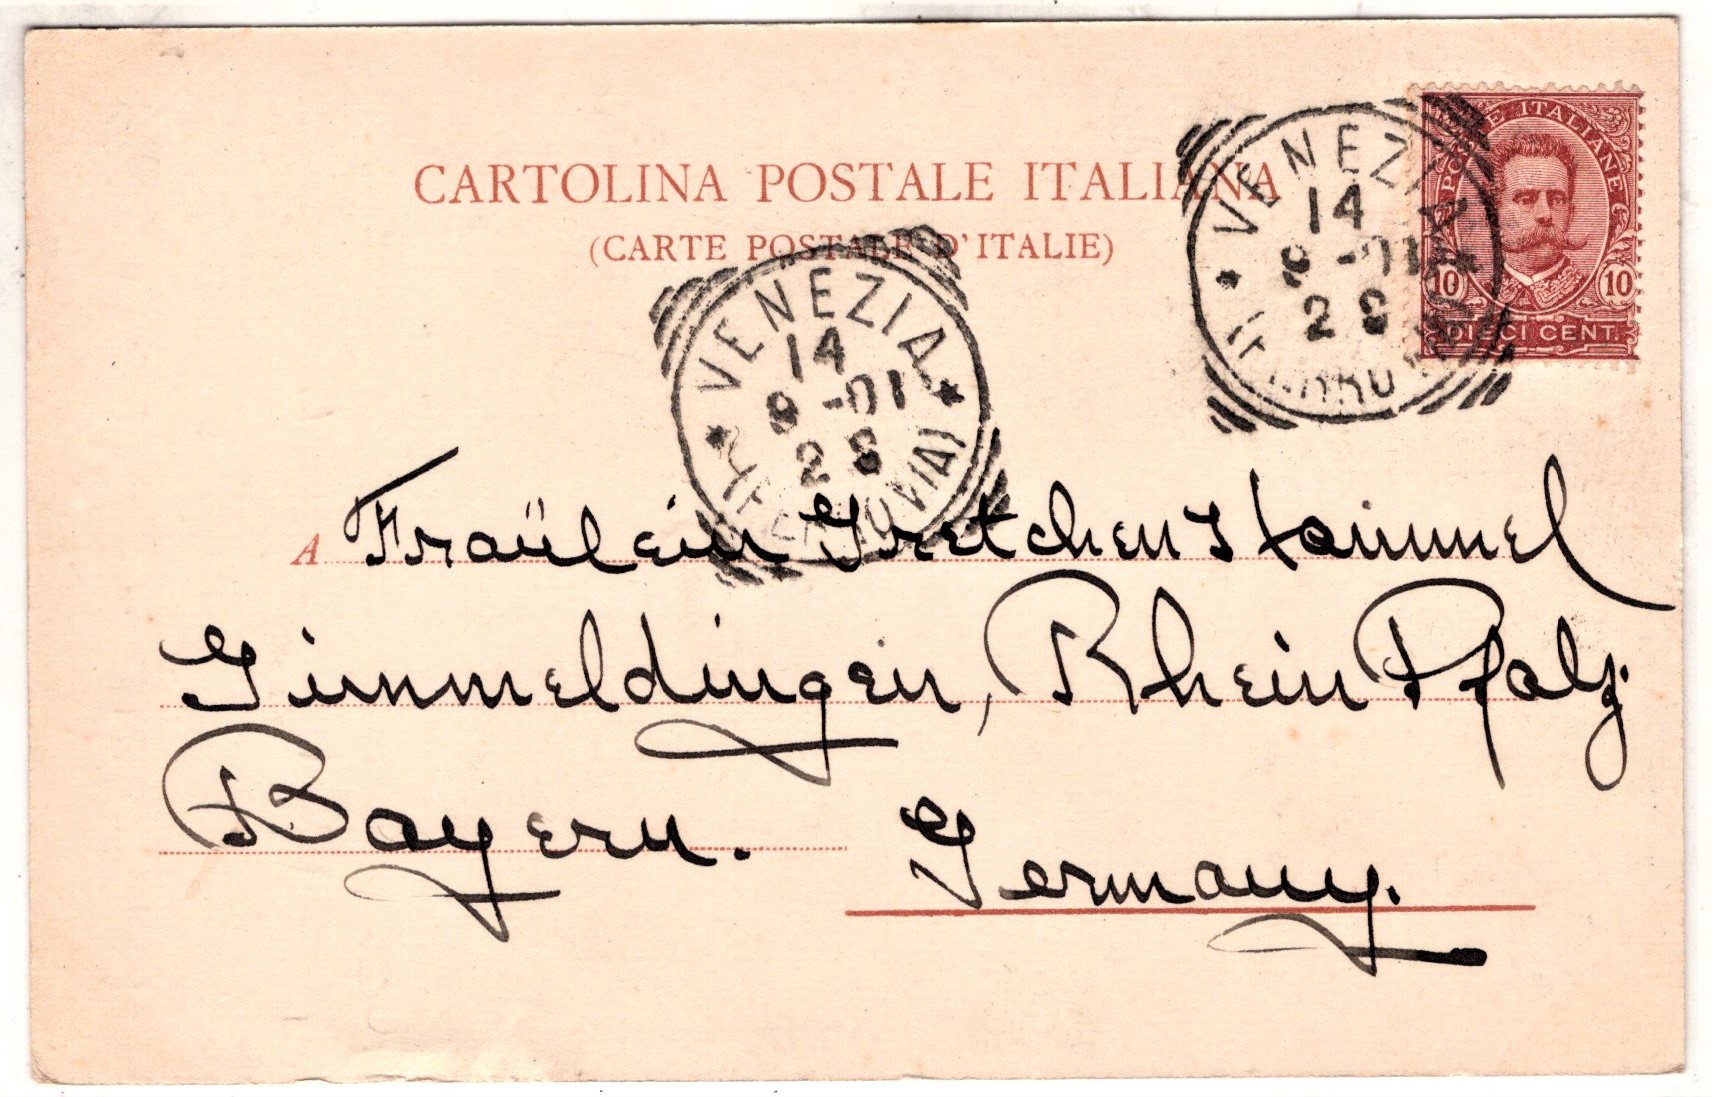 CARTOLINA POSTALE ITALIANA
(CARTE POSTALE D'ITALIE)
POSTE ITALIANE
10 10
DIECI CENT.
VENEZIA
14
9 -01
2 S
(FERROVIA)
VENEZIA
14
9 -01
2 S
(FERROVIA)
A Fraülein Gretchen Stammel
Gimmeldingen, Rhein Pfalz.
Bayern.
Germany.